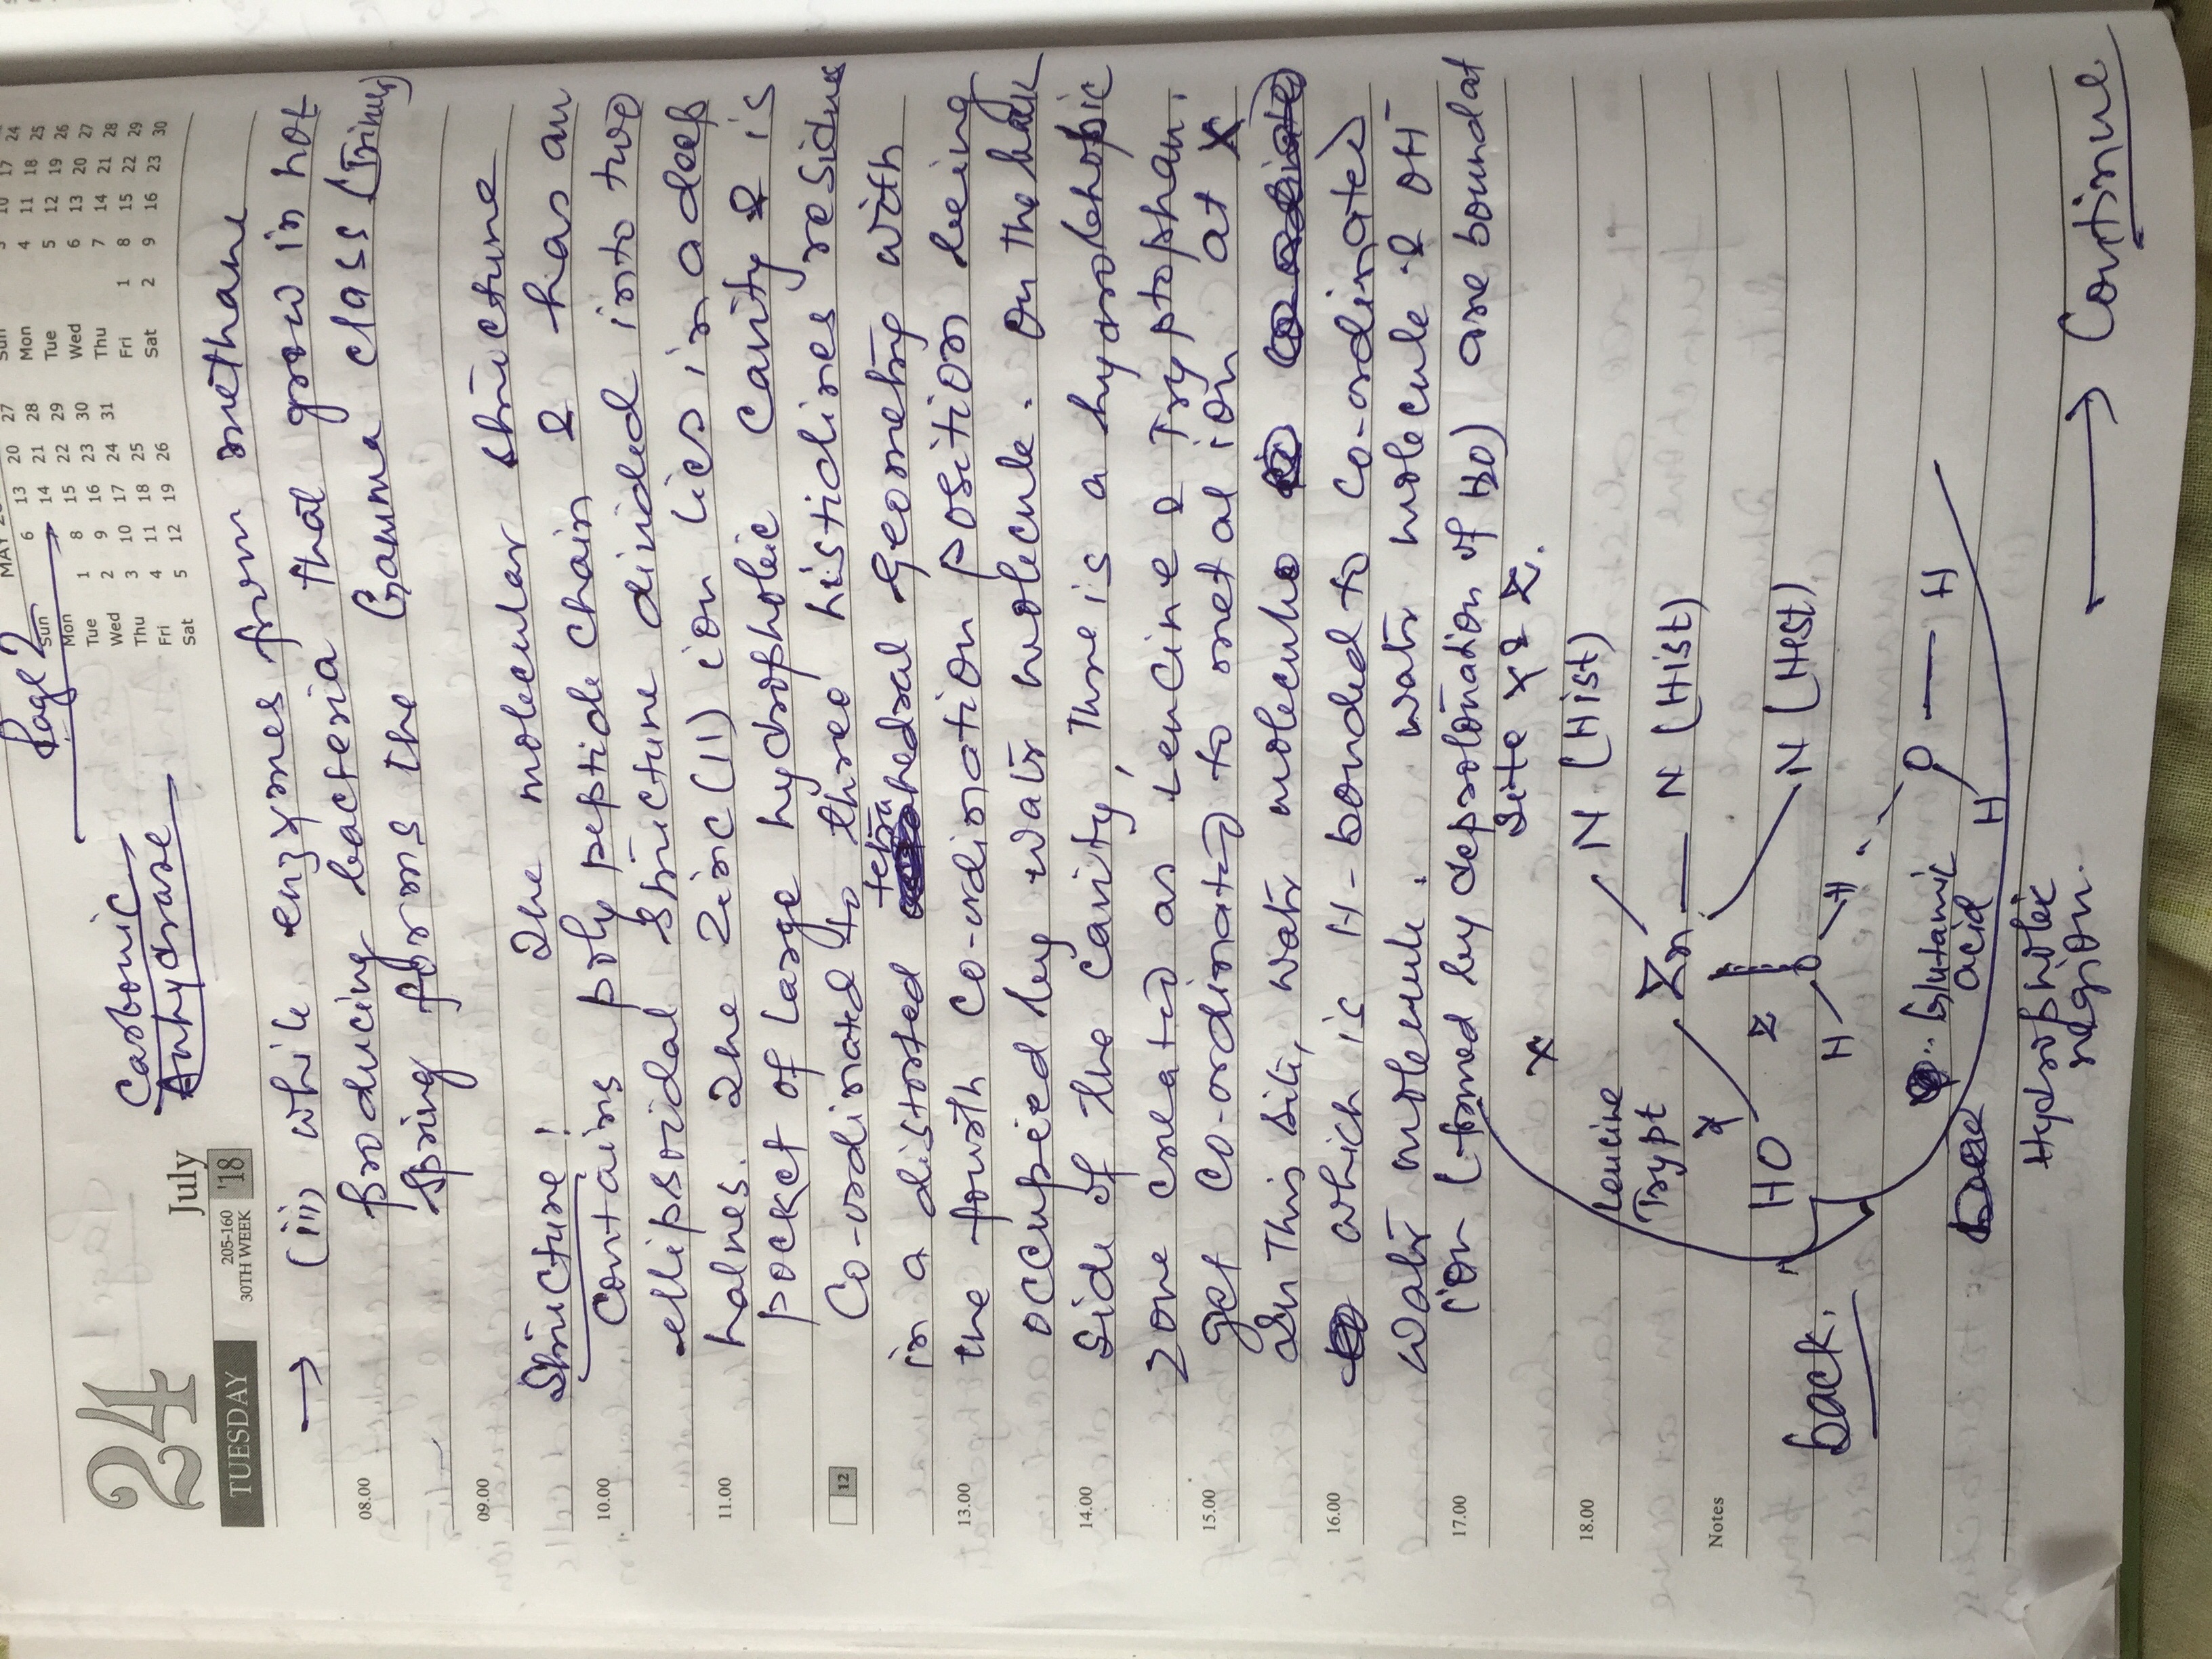 Page 2
24
TUESDAY
July
205-160
30TH WEEK
'18
Carbonic
Anhydrase
MAY
Sun 6 13 20 27
Mon 14 21 28
Tue 1 8 15 22 29
Wed 2 9 16 23 30
Thu 3 10 17 24 31
Fri 4 11 18 25
Sat 5 12 19 26
Sun 3 10 17 24
Mon 4 11 18 25
Tue 5 12 19 26
Wed 6 13 20 27
Thu 7 14 21 28
Fri 1 8 15 22 29
Sat 2 9 16 23 30
→ (iii) while enzymes from methane
08.00 producing bacteria that grow in hot
spring forms the Gamma class (Trimer)
09.00
Structure! The molecular structure
10.00 contains poly peptide chain & has an
ellipsoidal structure divided into two
11.00 halves. The Zinc (II) ion lies in a deep
pocket of large hydrophobic cavity & is
12 Co-ordinated to three histidines residues
in a distorted tetrahedral geometry with
13.00 the fourth co-ordination position being
occupied by watr molecule. On the back
14.00 side of the cavity, There is a hydrophobic
zone created as Leucine & Tryptophan.
15.00 get co-ordinated to metal ion at X
In this site, watr molecule
16.00 which is H-bonded to co-ordinated
watr molecule. watr molecule & OH
17.00 ion (formed by deprotonation of H2O) are bound at
Site Y & Z.
X
18.00
Leucine
Trypt
N (Hist)
Zn
N (Hist)
Notes
Y
HO
Z
N (Hist)
H
O
H
back.
Glutamic
acid
O
H
H
Hydrophobic
region.
→ Continue